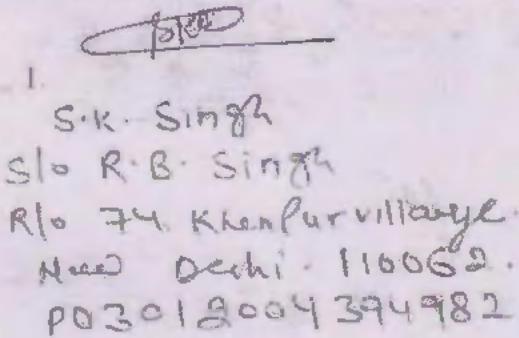 1.
S.K. Singh
S/o R.B. Singh
R/o 74 Khanpur village
New Delhi. 110062.
P03012004394982